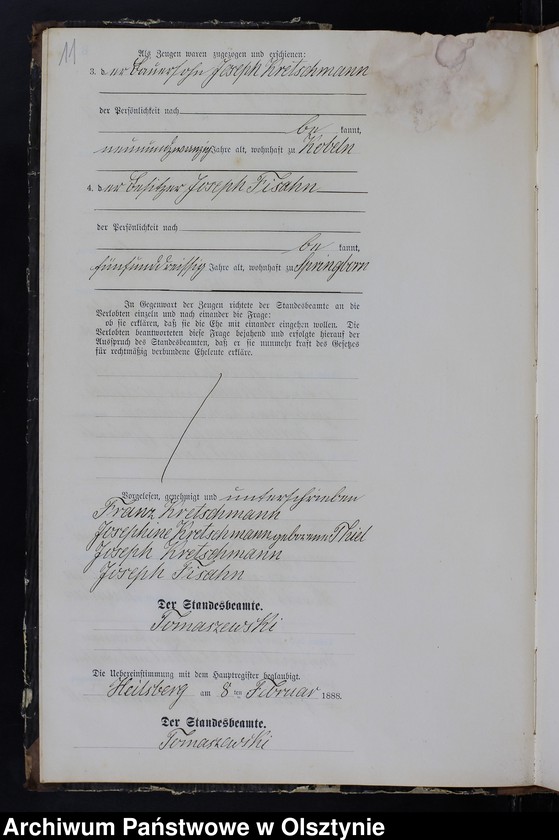 11
Als Zeugen waren zugezogen und erschienen:
3. der Bauersohn Joseph Kretschmann
der Persönlichkeit nach
be kannt,
neunundzwanzig Jahre alt, wohnhaft zu Kobeln
4. der Besitzer Joseph Fisahn
der Persönlichkeit nach
be kannt,
fünfunddreissig Jahre alt, wohnhaft zu Springborn
In Gegenwart der Zeugen richtete der Standesbeamte an die
Verlobten einzeln und nach einander die Frage:
ob sie erklären, daß sie die Ehe mit einander eingehen wollen. Die
Verlobten beantworteten diese Frage bejahend und erfolgte hierauf der
Ausspruch des Standesbeamten, daß er sie nunmehr kraft des Gesetzes
für rechtmäßig verbundene Eheleute erkläre.
Vorgelesen, genehmigt und unterschrieben
Franz Kretschmann
Josephine Kretschmann geborene Thiel
Joseph Kretschmann
Joseph Fisahn
Der Standesbeamte.
Tomaszewski
Die Uebereinstimmung mit dem Hauptregister beglaubigt.
Heilsberg am 8 ten Februar 1888.
Der Standesbeamte.
Tomaszewski
Archiwum Państwowe w Olsztynie